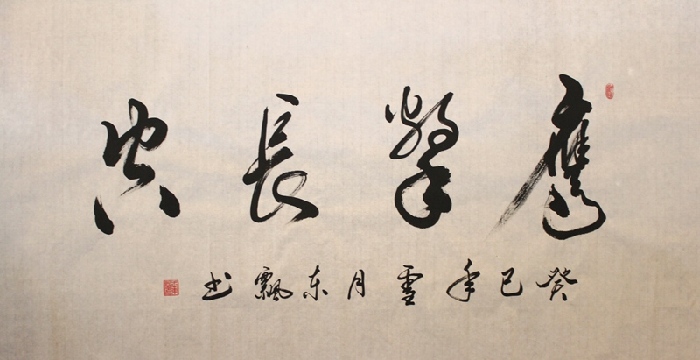 鷹擊長空
癸巳年雪月东飘书